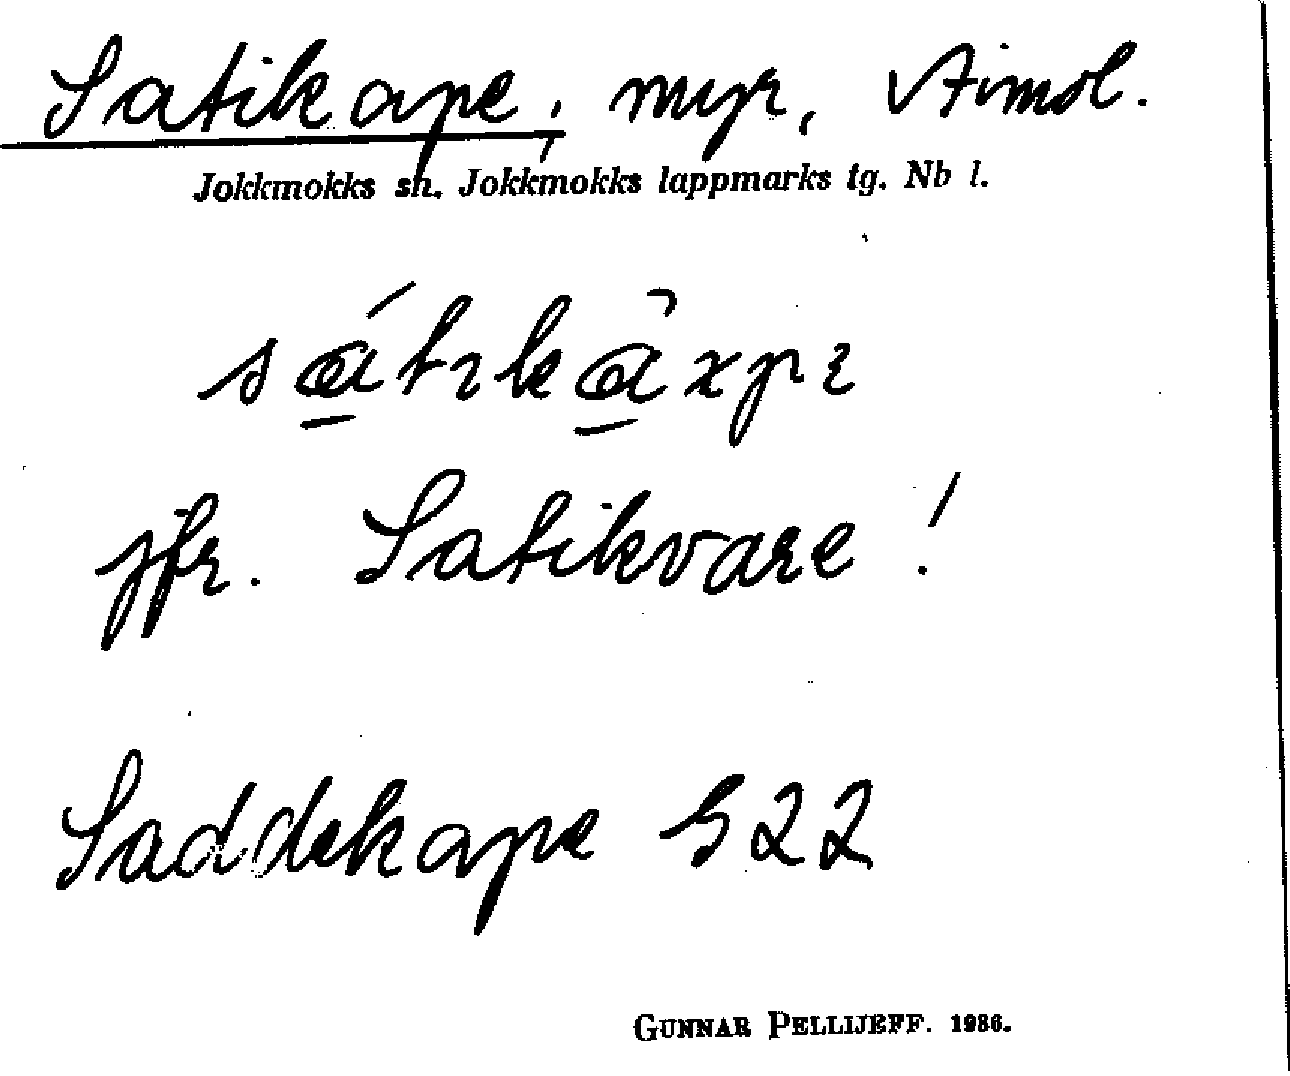 Satikape, myr, Vtimol.
Jokkmokks sn. Jokkmokks lappmarks tg. Nb l.
jfr. Satikvare!
Saddekape S22
GUNNAR PELLIJEFF. 1986.